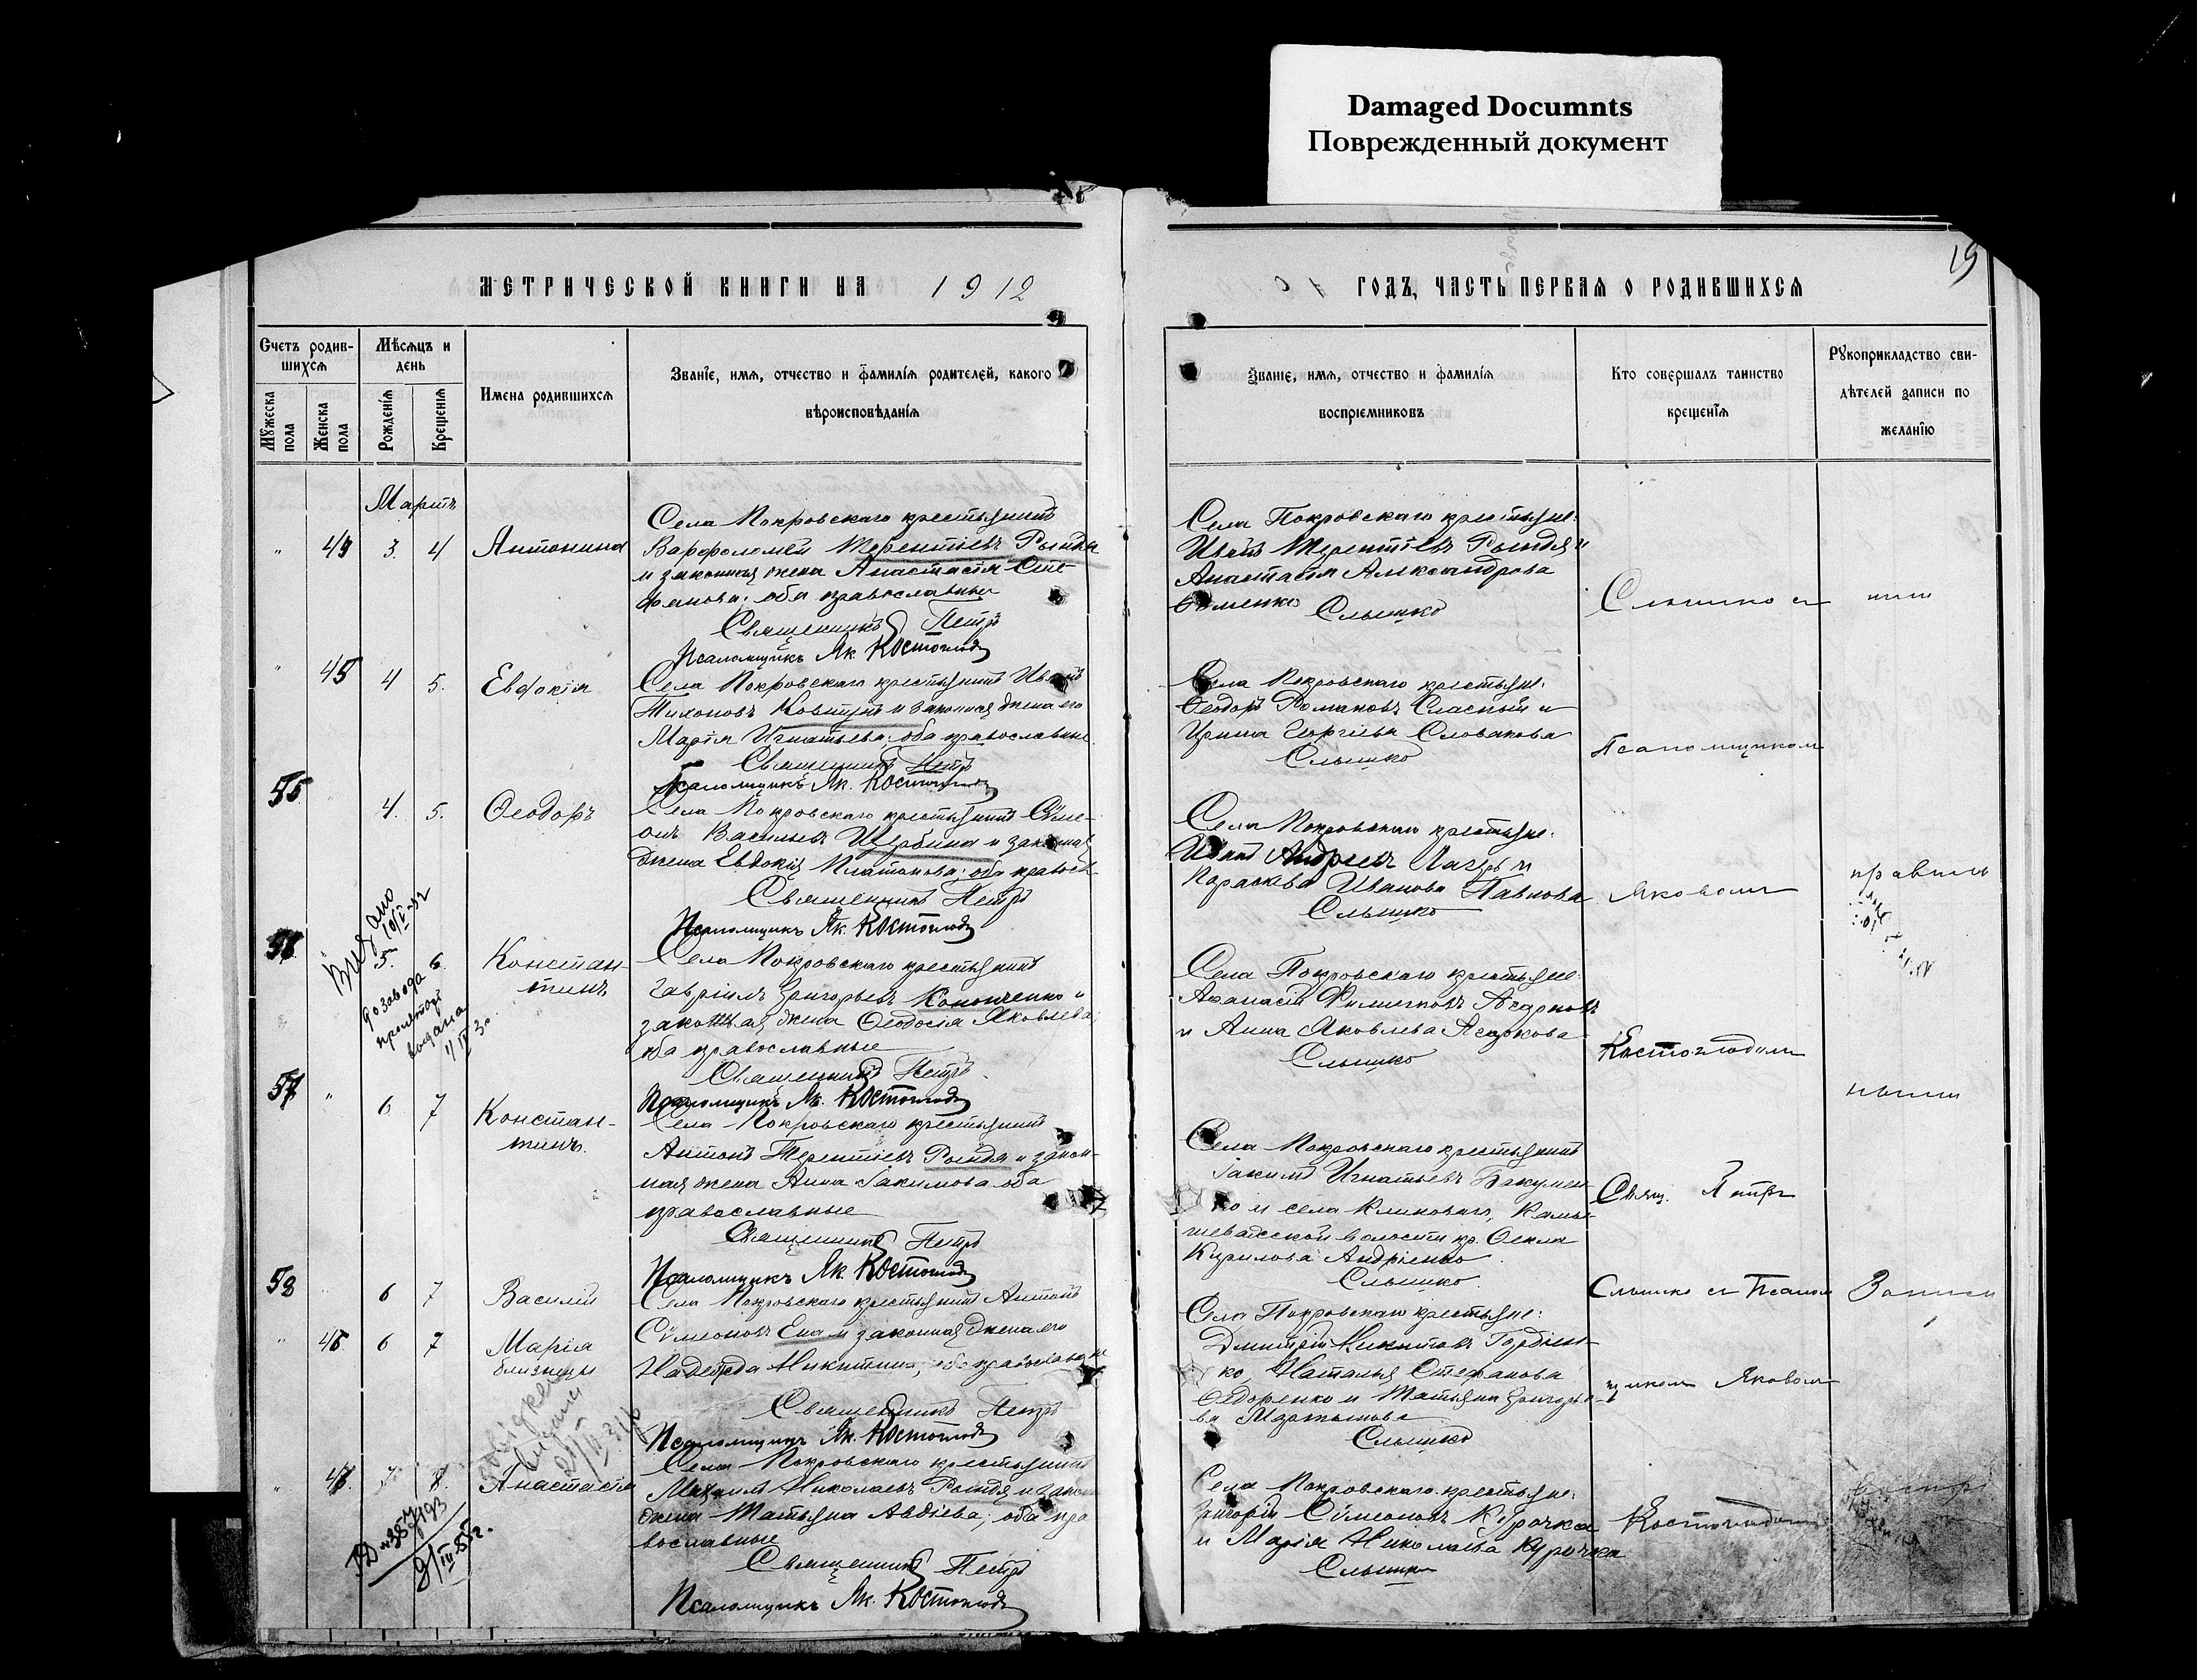 Damaged Documnts
Поврежденный документ
19
МЕТРИЧЕСКОЙ КНИГИ НА 1912
ГОДЪ, ЧАСТЬ ПЕРВАЯ О РОДИВШИХСЯ
Счетъ родив-
шихся
Мужеска пола
Женска пола
Мѣсяцъ и
день
Рожденія
Крещенія
Имена родившихся
Званіе, имя, отчество и фамилія родителей, какого
вѣроисповѣданія
Званіе, имя, отчество и фамилія
воспріемниковъ
Кто совершалъ таинство
крещенія
Рукоприкладство сви-
дѣтелей записи по
желанію
Мартъ
3. 4 Антонина
Села Покровскаго крестьянинъ
Варфоломей Терентіевъ Рындя
и законная жена Анастасія Сте-
фанова; оба православные
Священникъ Петръ
Псаломщикъ Як. Костоглодъ
Села Покровскаго крестьяне:
Иванъ Терентіевъ Рындя и
Анастасія Александрова
Слышко
Слышко и
45 4 5. Евдокія
Села Покровскаго крестьянинъ Иванъ
Тихоновъ Ковтунъ и законная жена его
Марія Игнатьева; оба православные
Священникъ Петръ
Псаломщикъ Як. Костоглодъ
Села Покровскаго крестьяне:
Ѳеодоръ Романовъ Спасный и
Ирина Георгіева Словакова
Слышко
Псаломщикомъ
55 4. 5. Ѳеодоръ
Села Покровскаго крестьянинъ Сѵме-
онъ Васильевъ Щербина и законная
жена Евдокія Платонова; оба правосл.
Священникъ Петръ
Псаломщикъ Як. Костоглодъ
Села Покровскаго крестьяне:
Иванъ Андреевъ и
Параскева Иванова Павлова
Слышко
Яковомъ
56 5. 6. Констан-
тинъ
Видано
Села Покровскаго крестьянинъ
Гавріилъ Григорьевъ Кононченко и
законная жена Ѳеодосія Яковлева;
оба православные
Священникъ Петръ
Псаломщикъ Як. Костоглодъ
Села Покровскаго крестьяне:
и Анна Яковлева
Слышко
Костоглодомъ
57 " 6 7 Констан-
тинъ.
Села Покровскаго крестьянинъ
Антонъ Терентіевъ Рындя и закон-
ная жена Анна Іакимова оба
православные
Священникъ Петръ
Псаломщикъ Як. Костоглодъ
Села Покровскаго крестьянинъ
Іакимъ Игнатьевъ Бакумен-
ко и села Климовки, Камы-
шеватской волости кр. Ѳекла
Кирилова Андріенко
Слышко
Свящ. Петръ
58 6 7 Василій
" 46 6 7 Марія
близнецы
Села Покровскаго крестьянинъ Антонъ
Сѵмеоновъ Ена и законная жена его
Надежда Никитина; оба православные
Священникъ Петръ
Псаломщикъ Як. Костоглодъ
Села Покровскаго крестьяне:
Дмитрій Никитовъ Гордіен-
ко, Наталья Стефанова
Ѳедоренко и Татьяна Григорье-
ва Мартынова
Слышко
Слышко и Псалом
щикомъ Яковомъ
" 47 7. 8. Анастасія
Села Покровскаго крестьянинъ
Михаилъ Николаевъ Рындя и закон
жена Татьяна Авдіева; оба пра
вославные
Священникъ Петръ
Псаломщикъ Як. Костоглодъ
Села Покровскаго крестьяне:
Григорій Сѵмеоновъ Курочка
и Марія Николаева Курочка
Слышко
Костоглодомъ